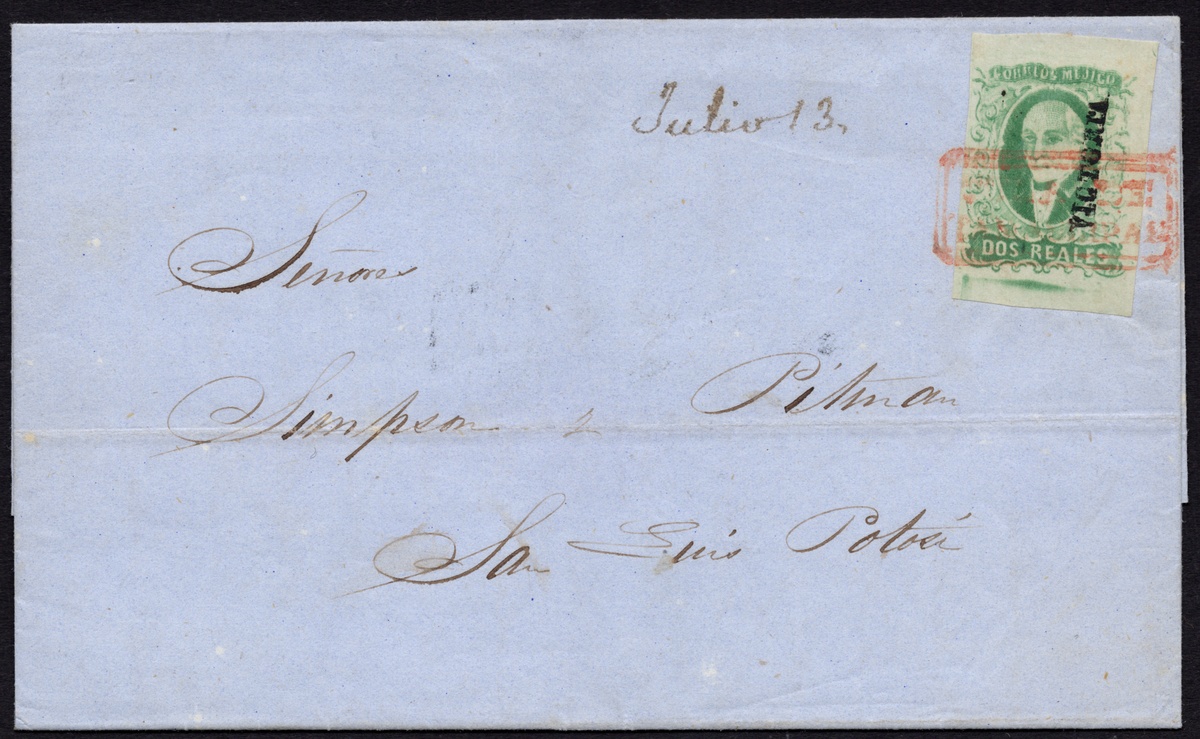 Julio 13,
CORREOS MEJICO
DOS REALES
Señores
Simpson y Pitman
San Luis Potosí